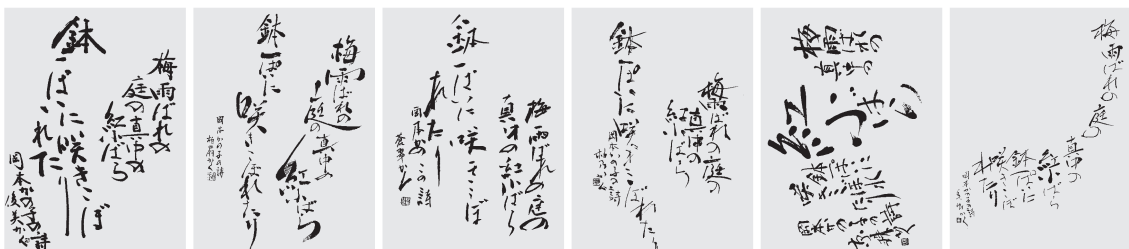 梅雨ばれの
庭の真中の
紅小ばら
鉢
一ぱいに咲きこぼ
れたり
岡本かの子の詩
俊美かく
梅雨ばれの
庭の真中の
紅小ばら
鉢一ぱいに
咲きこぼれたり
岡本かの子の詩
梅雨ばれの庭の
真中の紅小ばら
鉢一ぱいに咲きこぼ
れたり
岡本かの子の詩
梅雨ばれの庭の
真中の
紅小ばら
鉢一ぱいに咲きこぼれたり
岡本かの子の詩
梅雨ばれの
真中の
紅小ばら
鉢一ぱいに
梅雨ばれの庭の
真中の
紅小ばら
鉢一ぱいに
咲きこぼ
れたり